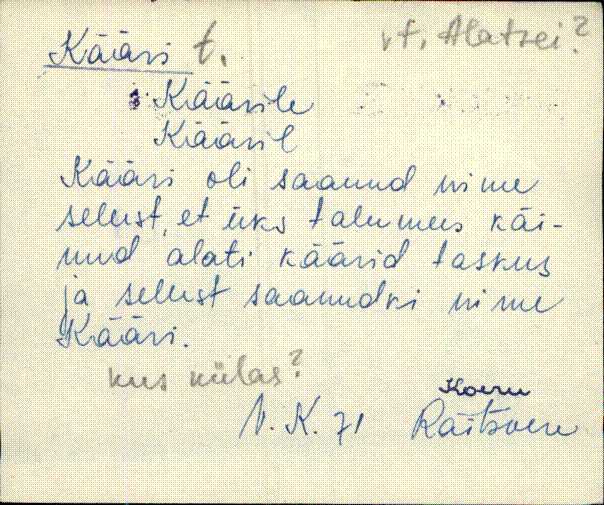 Kääri t. vt. Alatsei?
Käärile
Kääril
Kääri oli saanud nime
sellest, et üks talumees käi-
nud alati käärid taskus
ja sellest saanudki nime
Kääri.
kus külas?
Koeru
V. K. 71 Raitsvere